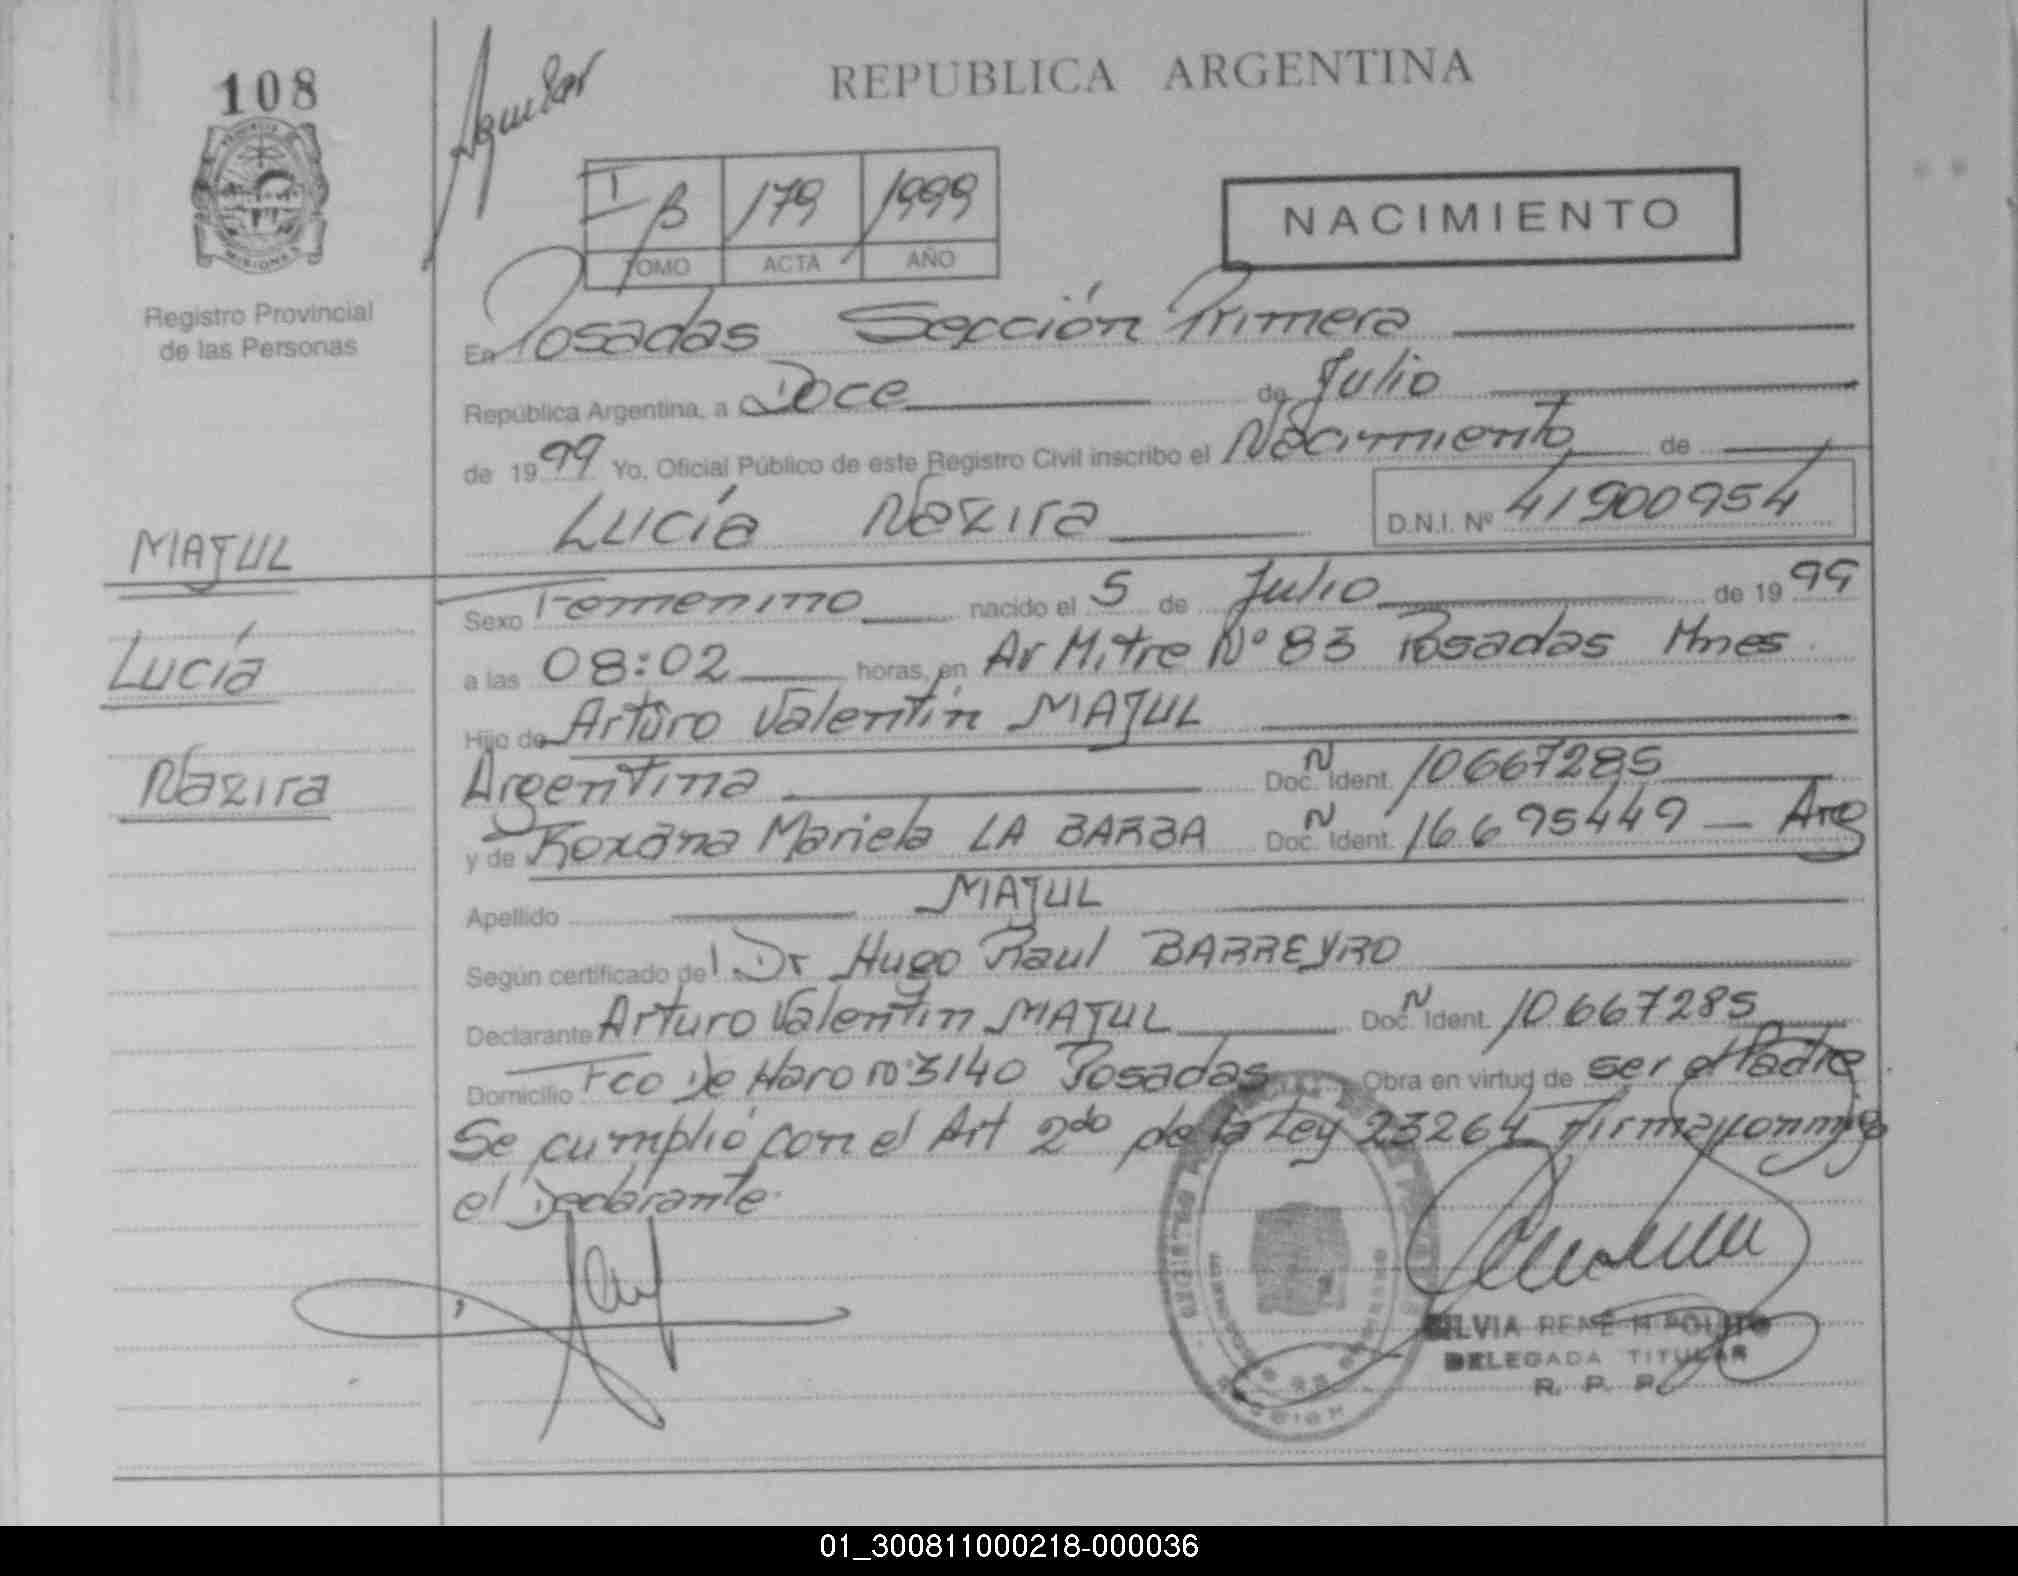 108
Aguilar
REPUBLICA ARGENTINA
I
B 179 1999
TOMO ACTA AÑO
NACIMIENTO
MISIONES
Registro Provincial
de las Personas
En Posadas Sección Primera
República Argentina, a Doce de Julio
de 1999 Yo, Oficial Público de este Registro Civil inscribo el Nacimiento de
Lucía Nazira D.N.I. Nº 41900954
MAJUL
Lucía
Nazira
Sexo Femenino nacido el 5 de Julio de 1999
a las 08:02 horas, en Av Mitre Nº 83 Posadas Mnes.
Hijo de Arturo Valentín MAJUL
Argentina Doc. N Ident. 10667285
y de Roxana Mariela LA BARBA Doc. N Ident. 16695449 — Arg
Apellido MAJUL
Según certificado del Dr Hugo Raul BARREYRO
Declarante Arturo Valentín MAJUL Doc. N Ident. 10667285
Domicilio Fco De Haro Nº 3140 Posadas Obra en virtud de ser el Padre
Se cumplió con el Art 2do de la Ley 23264 Firma conmigo
el Declarante.
SILVIA RENE HIPOLITO
DELEGADA TITULAR
R. P. P.
01_300811000218-000036